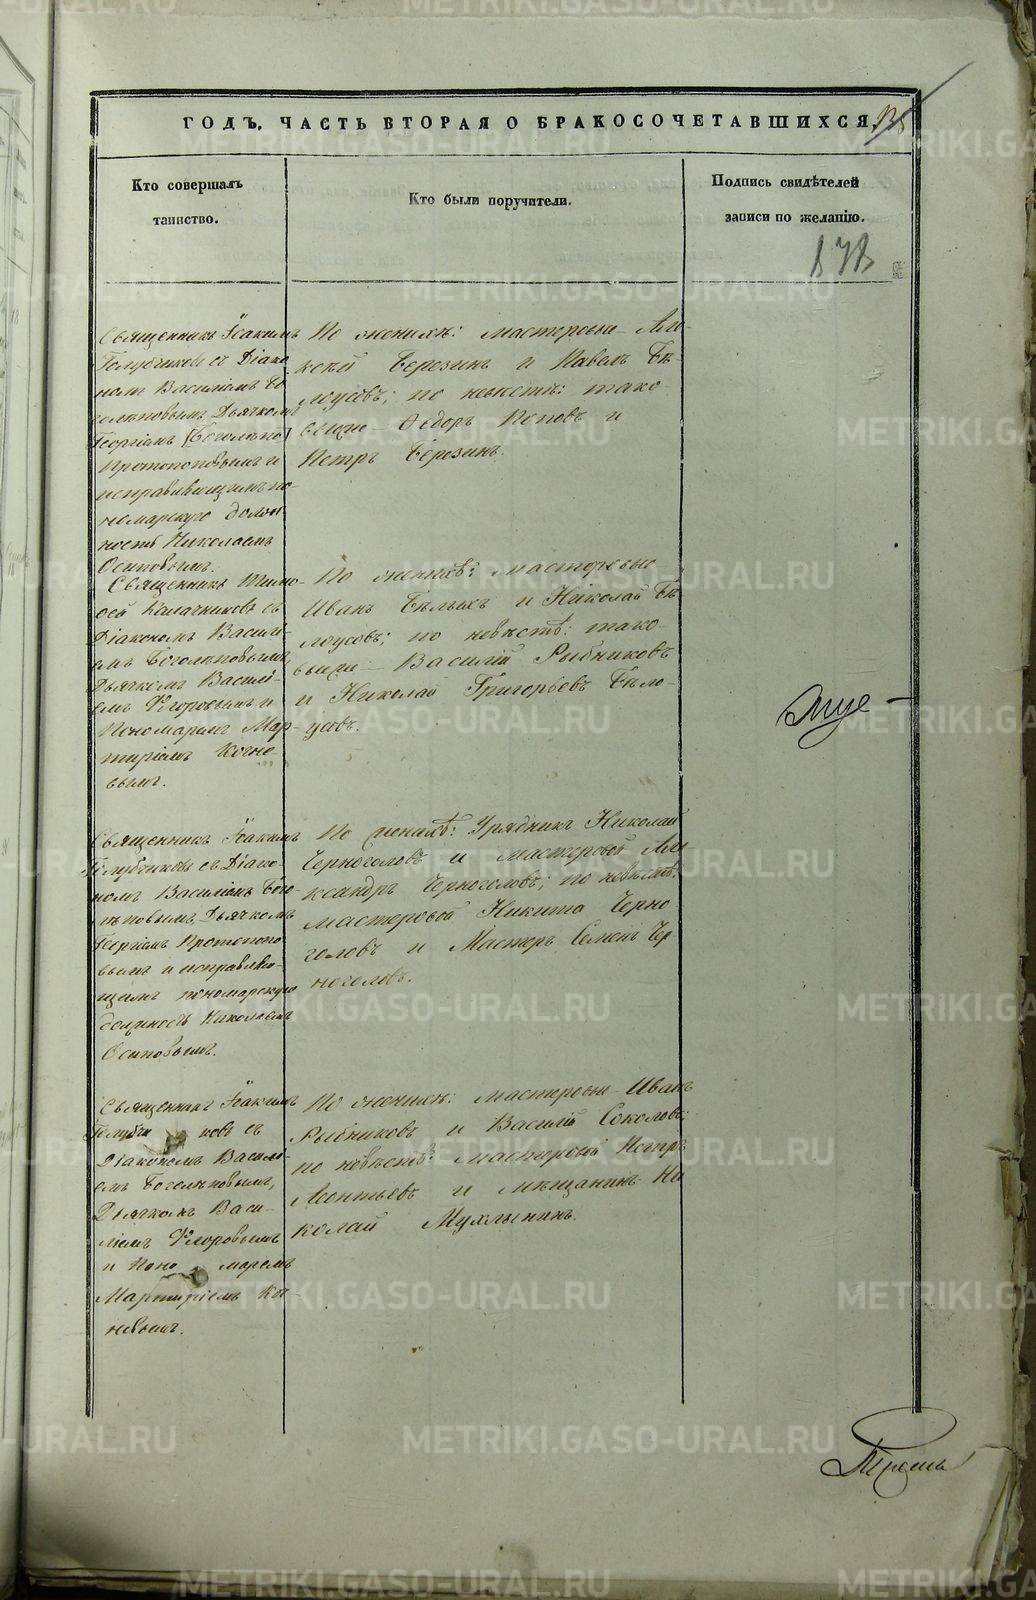 ГОДЪ. ЧАСТЬ ВТОРАЯ О БРАКОСОЧЕТАВШИХСЯ.
Кто совершалъ
таинство.
Кто были поручители.
Подпись свидѣтелей
записи по желанію.
Священникъ Іоакимъ
Голубчиковъ съ Діако
номъ Василіемъ Бо
голѣповымъ, Дьячкомъ
Георгіемъ
Протопоповымъ и
исправляющимъ по-
номарскую долж
ность Николаемъ
Осиповымъ.
По женихѣ: мастеровые Але-
ксѣй Березинъ и Павелъ Бѣ
лоусовъ; по невѣстѣ: тако-
выеже Ѳедоръ Поповъ и
Петръ Березинъ.
Священникъ Тимо-
ѳей Калачниковъ съ
Діакономъ Васили-
емъ Боголѣповымъ,
Дьячкомъ Васили-
емъ Флоровымъ и
Пономаремъ Мар-
тиріемъ
вымъ.
По женихѣ: мастеровые
Иванъ Бѣлыхъ и Николай Бѣ
лоусовъ; по невѣстѣ: тако-
выеже Василій Рыбниковъ
и Николай Григорьевъ Бѣло-
усовъ.
Священникъ Іоакимъ
Голубчиковъ съ Діако-
номъ Василіемъ Бого
лѣповымъ, Дьячкомъ
Георгіемъ Протопопо
вымъ и исправляю-
щимъ пономарскую
должность Николаемъ
Осиповымъ.
По женихѣ: Урядникъ Николай
Черноголовъ и мастеровой Але
ксандръ Черноголовъ; по невѣстѣ:
мастеровой Никита Черно
головъ и Мастеръ Семенъ Чер
ноголовъ.
Священникъ Іоакимъ
Голубчиковъ съ
Діакономъ Васили-
емъ Боголѣповымъ,
Дьячкомъ Васи-
ліемъ Флоровымъ
и Пономаремъ
Мартиріемъ
невымъ.
По женихѣ: мастеровые Иванъ
Рыбниковъ и Василій Соколовъ;
по невѣстѣ: мастеровой Петръ
Леонтьевъ и мѣщанинъ Ни
колай Мухлынинъ.
METRIKI.GASO-URAL.RU